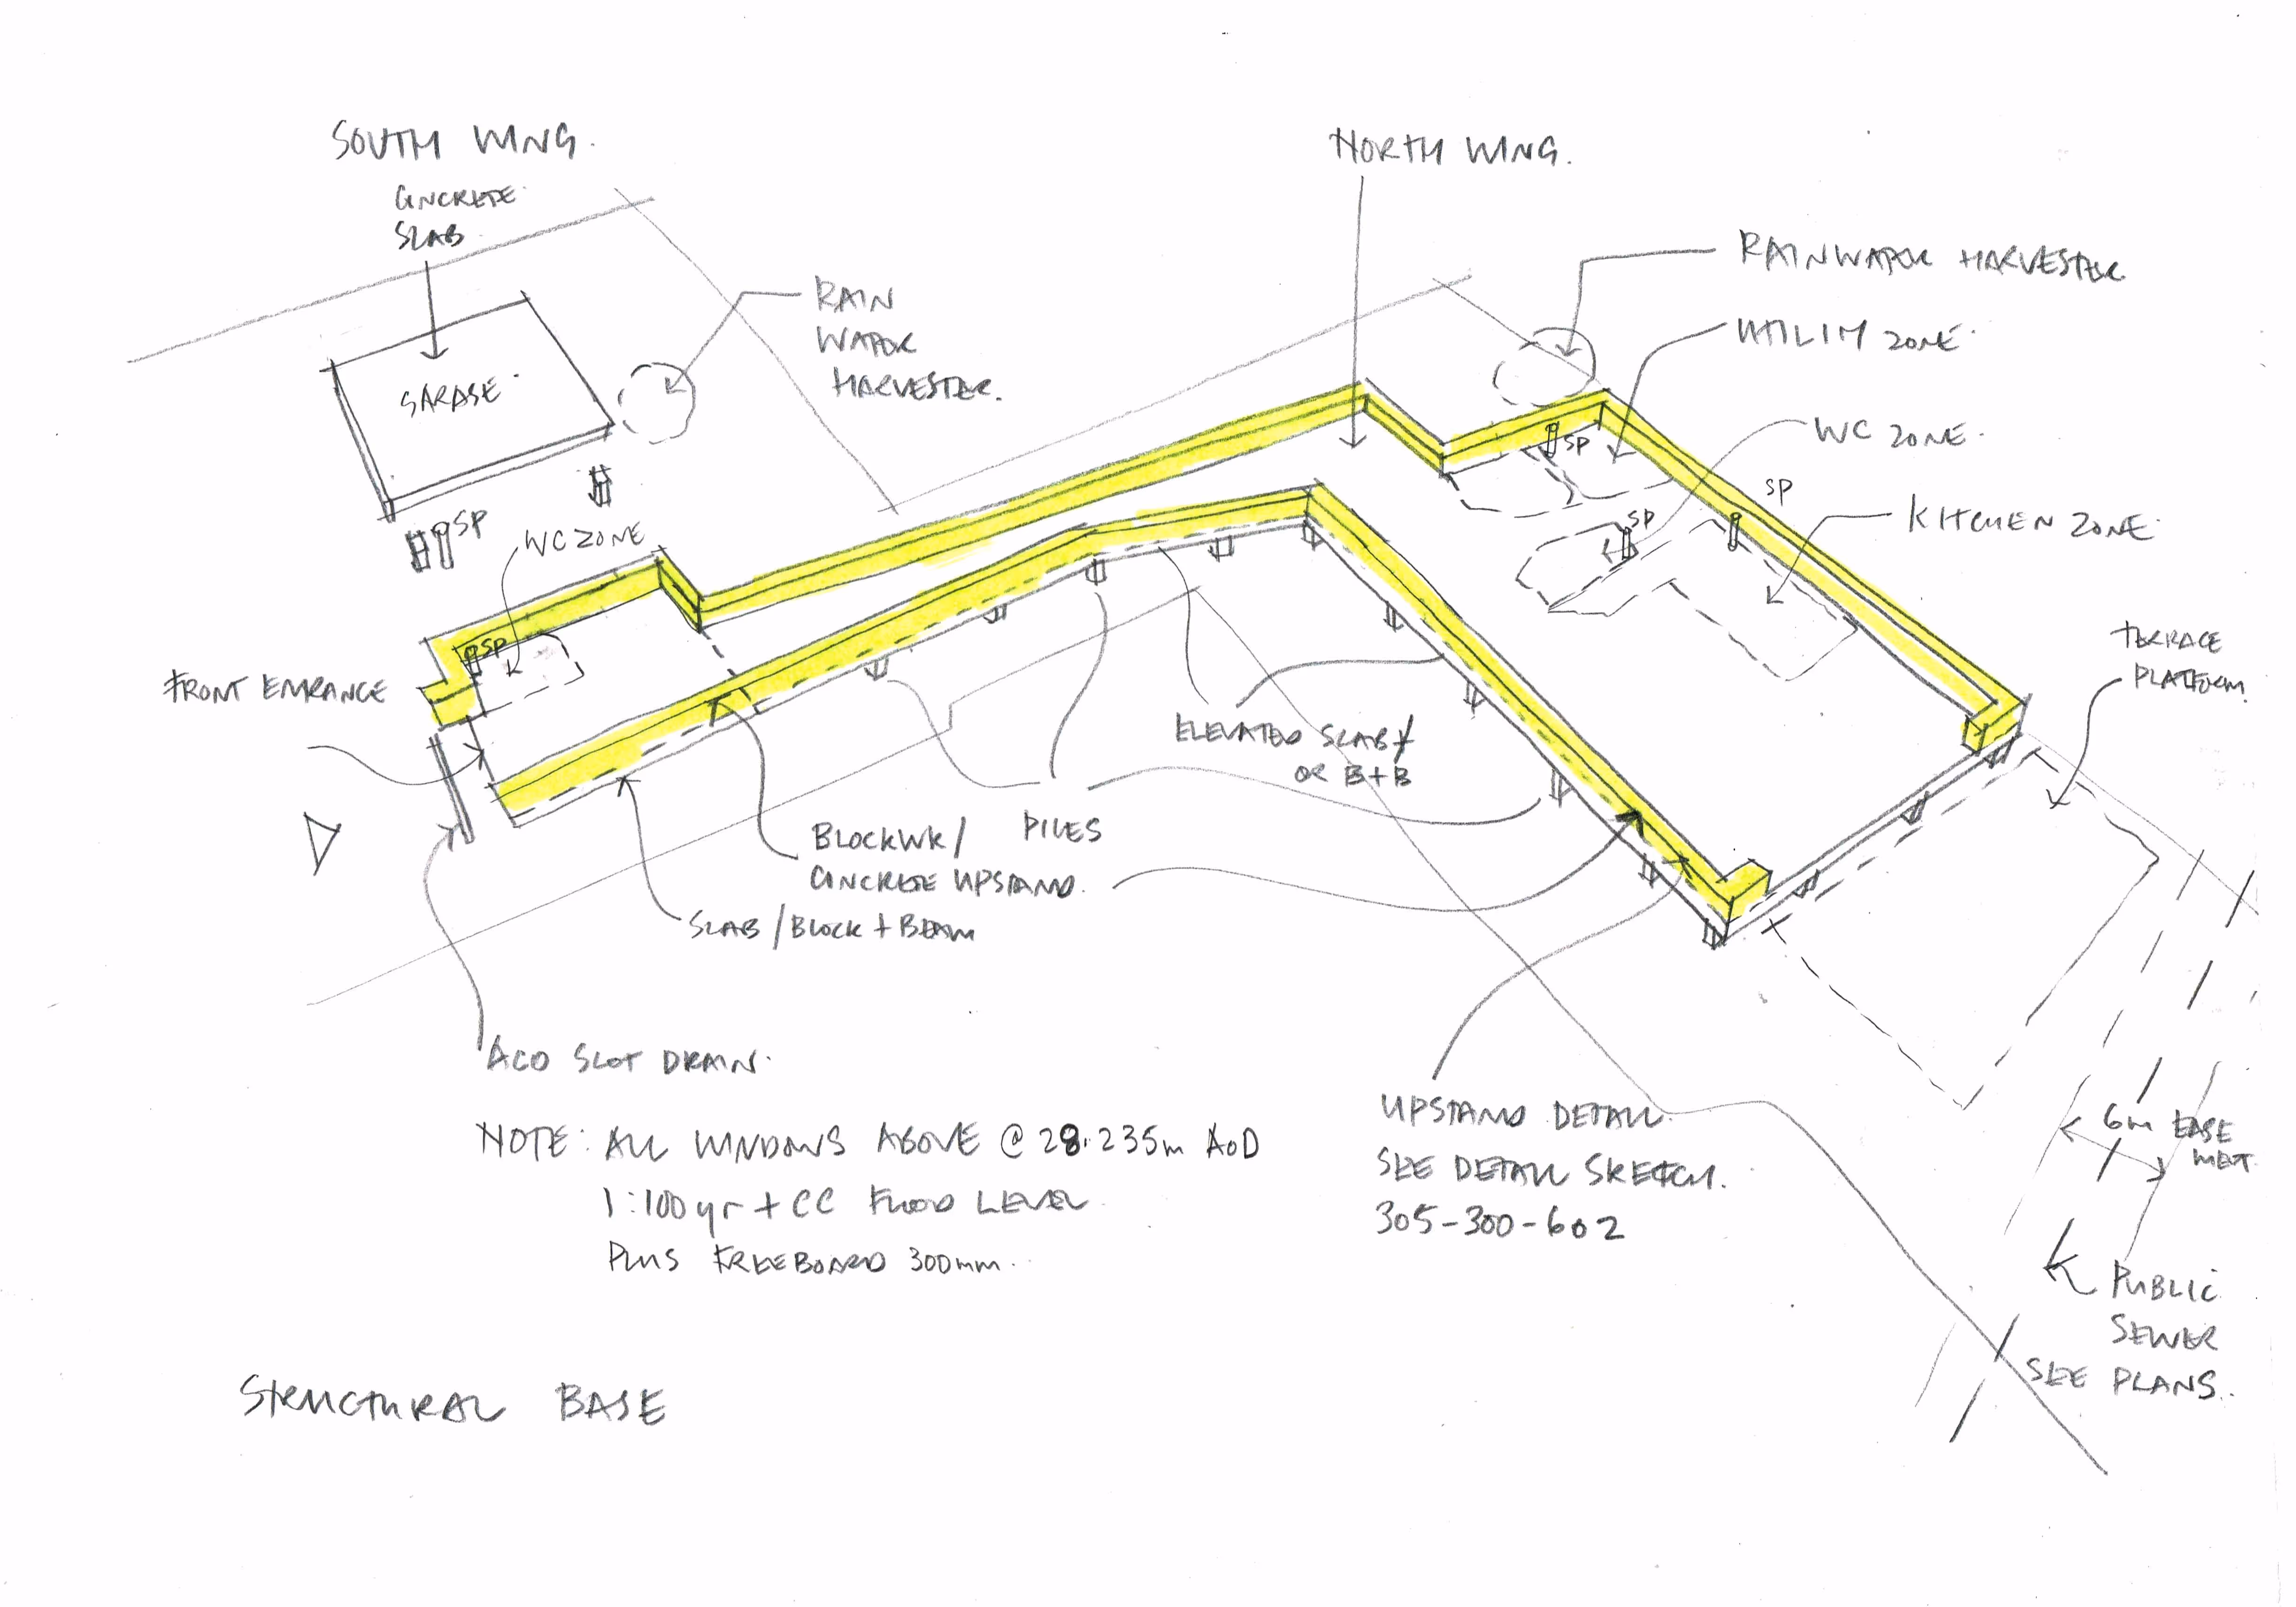 SOUTH WING.
CONCRETE
SLAB
GARAGE.
RAIN
WATER
HARVESTER.
NORTH WING.
RAINWATER HARVESTER
UTILITY ZONE.
WC ZONE.
KITCHEN ZONE.
SP
SP
SP
SP
WC ZONE
SP
FRONT ENTRANCE
TERRACE
PLATFORM
ELEVATED SLAB/
OR B+B
PILES
BLOCKWK/
CONCRETE UPSTAND.
SLAB/BLOCK+BEAM
ACO SLOT DRAIN.
NOTE: ALL WINDOWS ABOVE @ 28.235m AOD
1:100yr + CC FLOOD LEVEL
PLUS FREEBOARD 300mm.
UPSTAND DETAIL.
SEE DETAIL SKETCH.
305-300-602
6m EASE
MENT.
PUBLIC
SEWER
SEE PLANS.
STRUCTURAL BASE